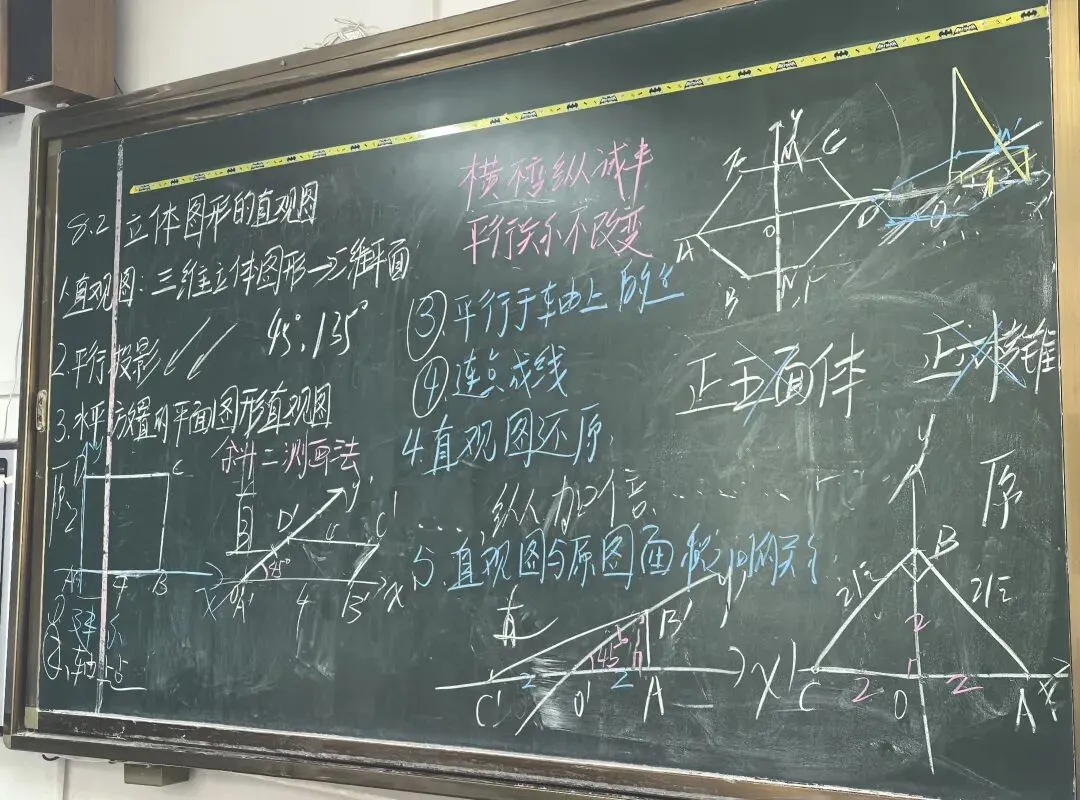 8.2 立体图形的直观图
1.直观图:三维立体图形→二维平面
2.平行投影
45°,135°
3.水平放置的平面图形直观图
斜二测画法
横不变纵减半
平行关系不改变
③.平行于轴上的
④连点成线
4.直观图还原
纵加倍
5.直观图与原图面积
正五面体
正六棱锥
原
D
C
A
4
B
x
直
y'
D'
C'
45°
A'
4
B'
x'
直
y'
B'
45°
C'
2
O'
2
A
x'
原
y
B
2√2
2√2
2
C
2
O
2
A
x
F
M
y
A
O
D
B
N
O'
x'